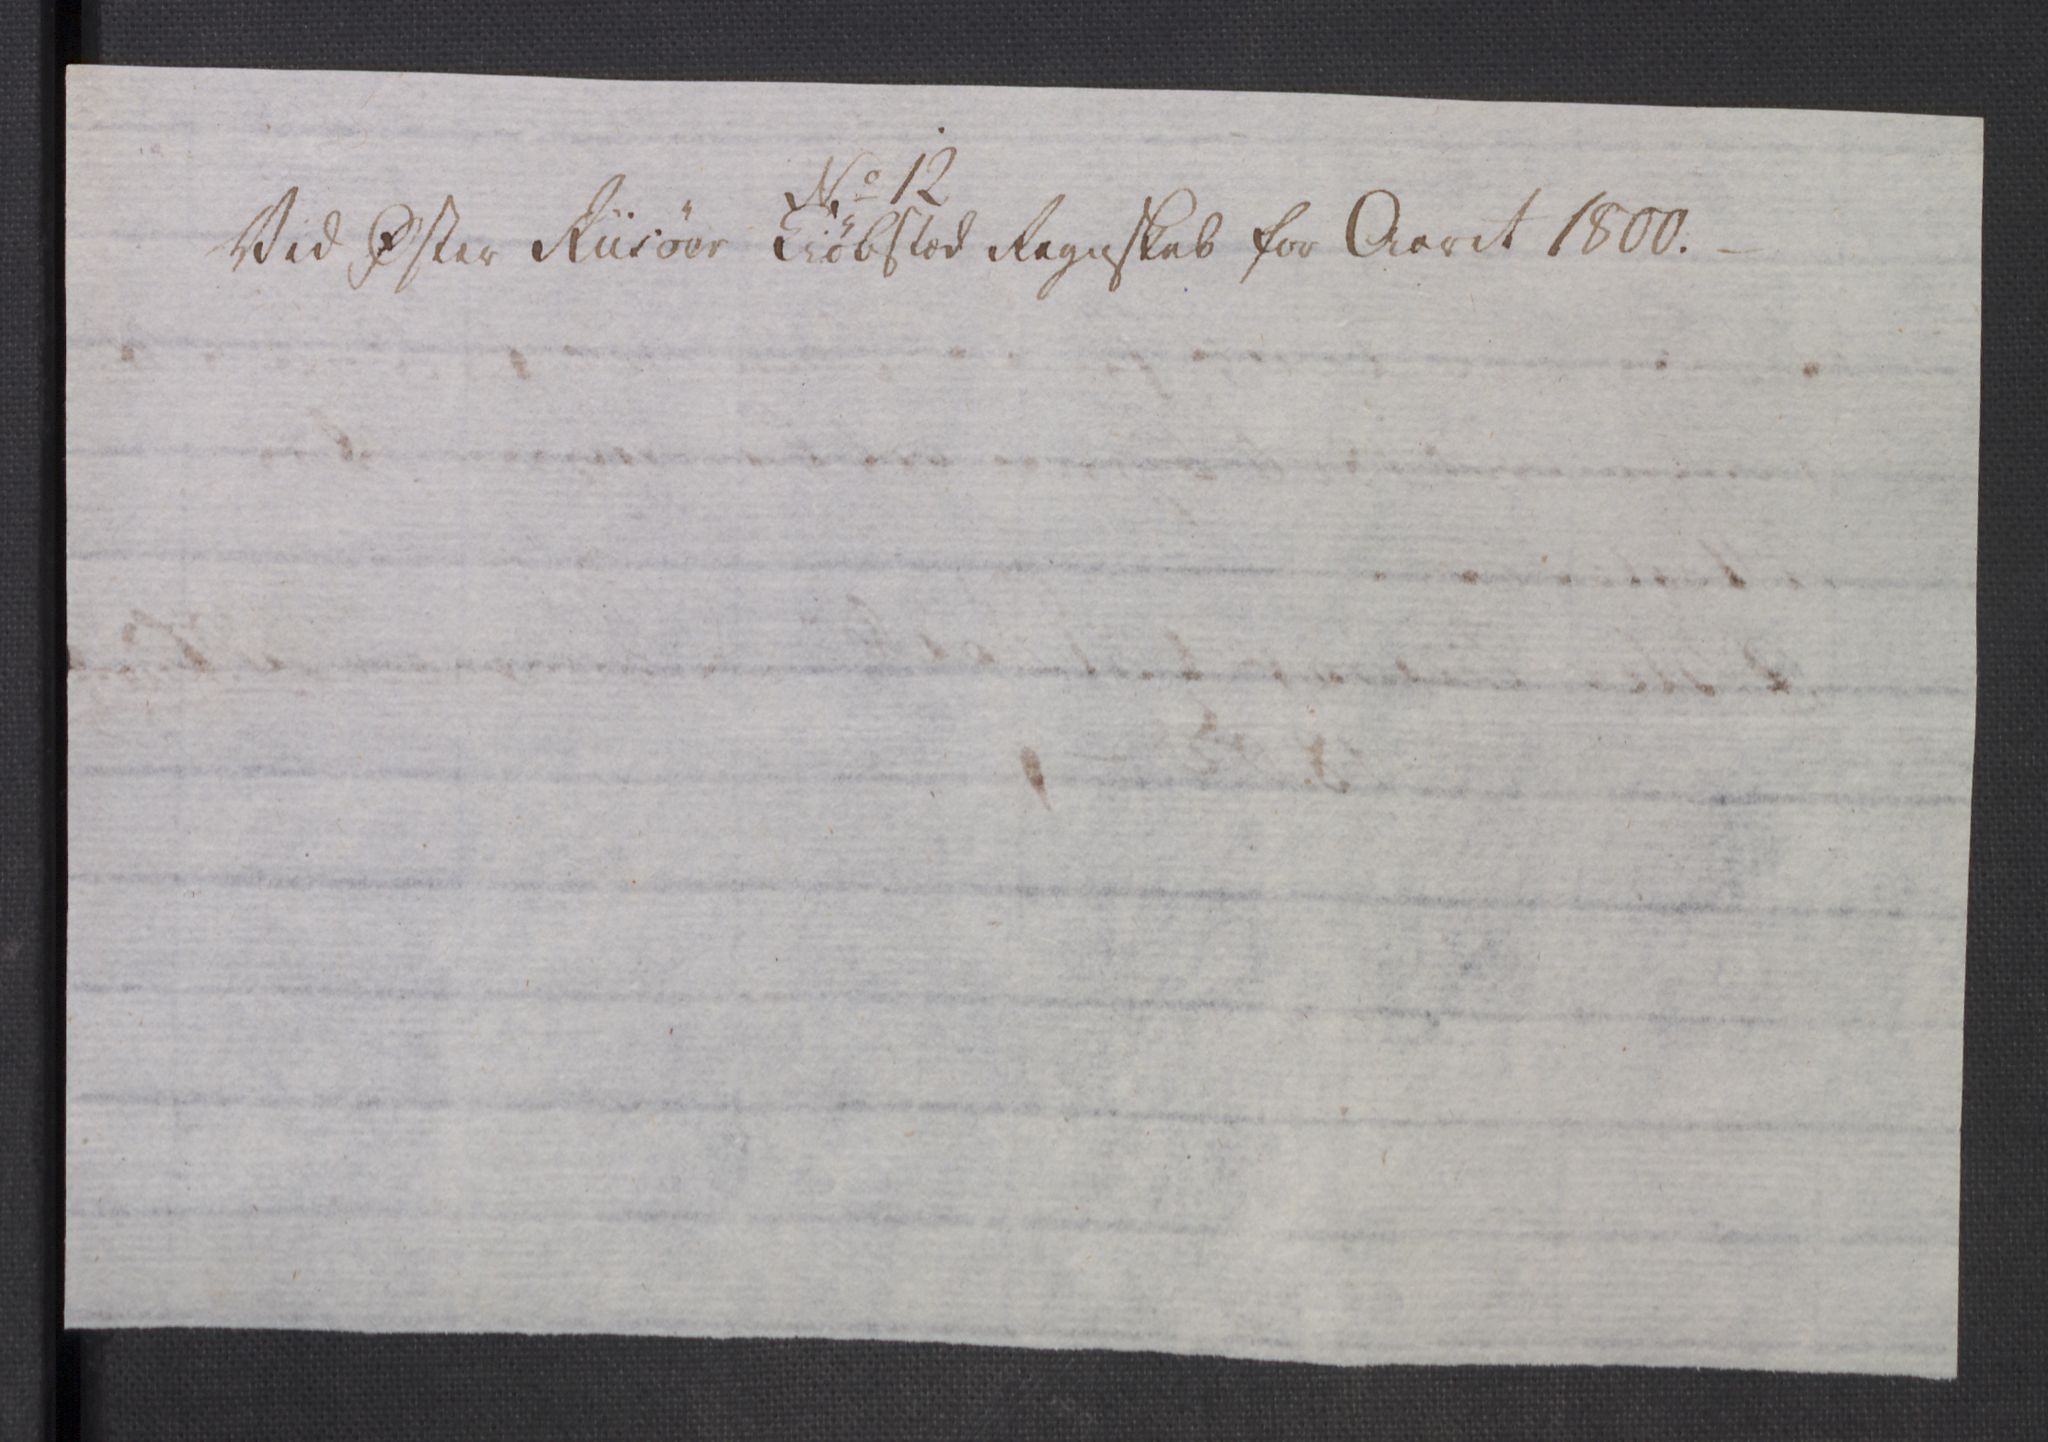 No 12
Ved Øster Riisöer Kiöbstæd Regnskab for Aaret 1800. –